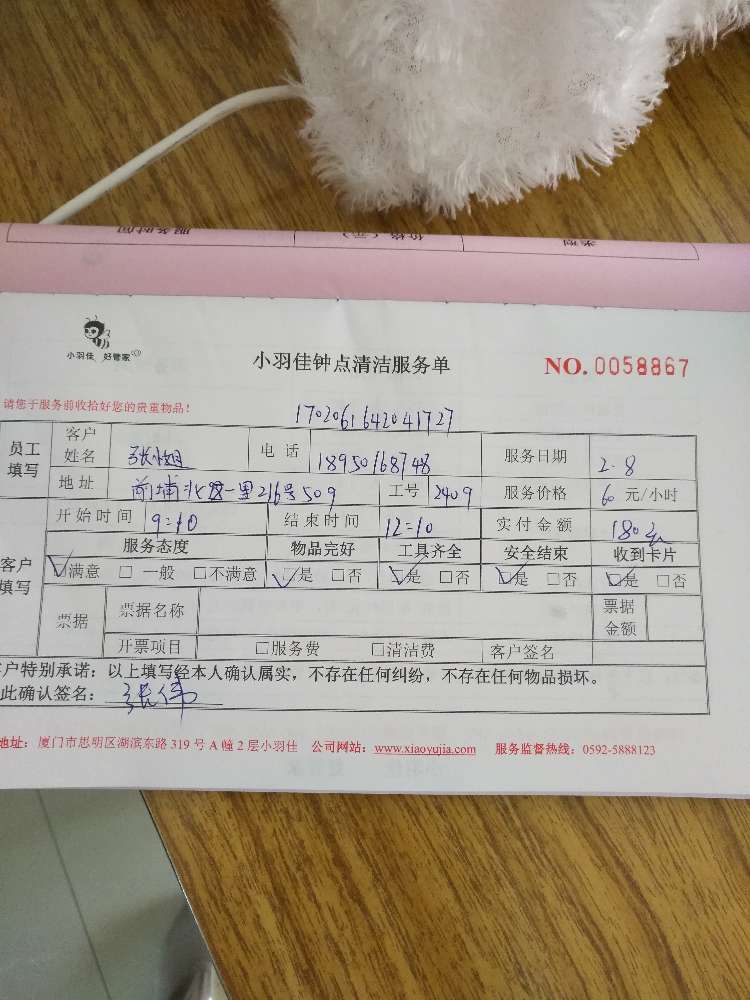 服务时间 价格（元） 类型
小羽佳 好管家
小羽佳钟点清洁服务单 NO. 0058867
请您于服务前收拾好您的贵重物品！
1702061642041727
员工填写 客户姓名 张小姐 电话 18950168748 服务日期 2.8
地址 前埔北区一里216号509 工号 2409 服务价格 60 元/小时
开始时间 9:10 结束时间 12:10 实付金额 180元
客户填写 服务态度 物品完好 工具齐全 安全结束 收到卡片
☑满意 □一般 □不满意 ☑是 □否 ☑是 □否 ☑是 □否 ☑是 □否
票据 票据名称 票据金额
开票项目 □服务费 □清洁费 客户签名
客户特别承诺：以上填写经本人确认属实，不存在任何纠纷，不存在任何物品损坏。
此确认签名：张伟
地址：厦门市思明区湖滨东路 319 号 A 幢 2 层小羽佳 公司网站：www.xiaoyujia.com 服务监督热线：0592-5888123